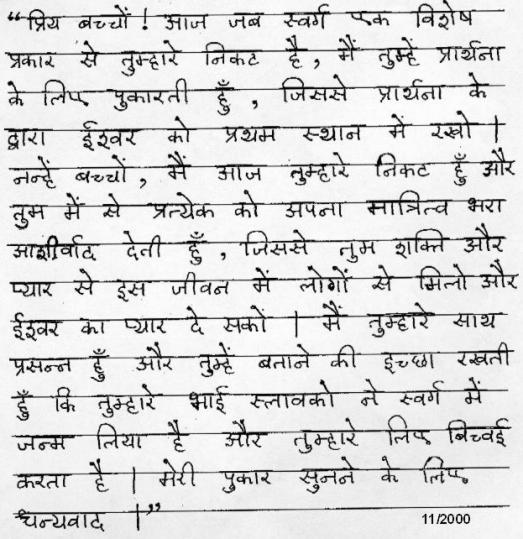 “प्रिय बच्चों ! आज जब स्वर्ग एक विशेष
प्रकार से तुम्हारे निकट है, मैं तुम्हें प्रार्थना
के लिए पुकारती हूँ , जिससे प्रार्थना के
द्वारा ईश्वर को प्रथम स्थान में रखो |
नन्हें बच्चों, मैं आज तुम्हारे निकट हूँ और
तुम में से प्रत्येक को अपना मात्रित्व भरा
आशीर्वाद देती हूँ , जिससे तुम शक्ति और
प्यार से इस जीवन में लोगों से मिलो और
ईश्वर का प्यार दे सको | मैं तुम्हारे साथ
प्रसन्न हूँ और तुम्हें बताने की इच्छा रखती
हूँ कि तुम्हारे भाई स्लावको ने स्वर्ग में
जन्म लिया है और तुम्हारे लिए बिच्वई
करता है | मेरी पुकार सुनने के लिए
धन्यवाद |”
11/2000